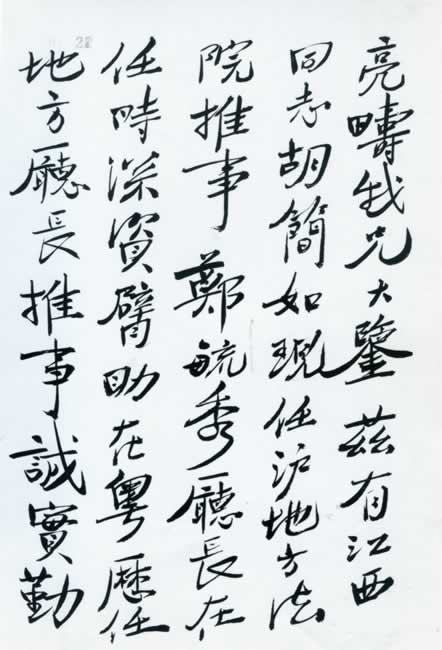 亮疇我兄大鑒 茲有江西
同志胡簡如現任沪地方法
院推事 鄭毓秀廳長在
任時深資臂助在粵歷任
地方廳長推事誠實勤
22